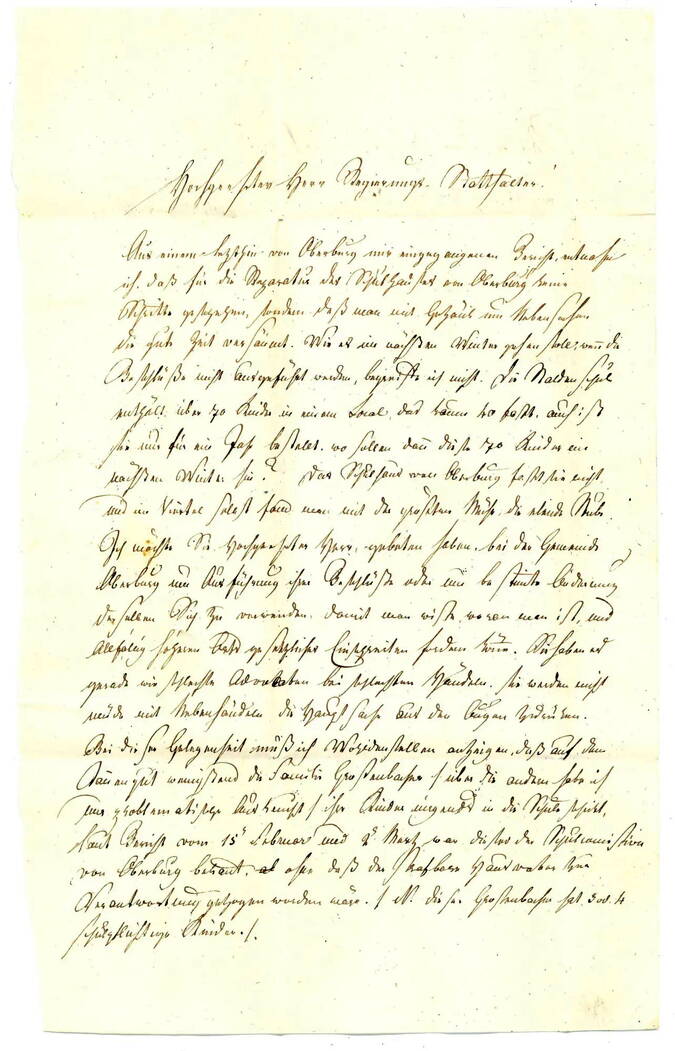 Hochgeehrter Herr Regierungs-Statthalter!
Aus einem letzthin von Oberburg mir eingegangenen Bericht, entnehme
ich, daß für die Reparatur des Schulhauses von Oberburg keine
Schritte geschehen, sondern daß man mit Gezänk um Nebensachen
die gute Zeit versäumt. Wie es im nächsten Winter gehen soll, wenn die
Beschlüße nicht ausgeführt werden, begreife ich nicht. Die Staldenschul
enthält über 170 Kinder in einem Local, das kaum 40 faßt, auch ist
sie nur für ein Jahr bestellt. wo sollen dann diese 170 Kinder im
nächsten Winter hin? Das Schulhaus von Oberburg faßt sie nicht
und im Viertel selbst fand man mit der größten Mühe die elende Stube.
Ich möchte Sie Hochgeehrter Herr, gebeten haben, bei der Gemeinde
Oberburg um Ausführung ihrer Beschlüße oder um bestimte Änderung
derselben Sich zu verwenden, damit man wiße, woran man ist, und
Allfälig höheren Orts gesetzliches Einschreiten fordern könne. Sie haben es
gerade wie schlechte Advokaten bei schlechten Händeln, sie werden nicht
müde mit Nebenhändeln die Hauptsache aus den Augen zu rücken.
Bei dieser Gelegenheit muß ich Wohldenselben anzeigen, daß auf dem
Tannengut wenigstens die Familie Großenbacher /: über die andern habe ich
nur problematische Auskunft :/ ihre Kinder nirgends in die Schule schickt,
Laut Bericht vom 15t Februar und 2t Merz war dieses der Schulcomission
von Oberburg bekannt, ohne daß der strafbare Hausvater zur
Verantwortung gezogen worden wäre. /: N. dieser Großenbacher hat 3 od. 4
schulpflichtige Kinder. :/.